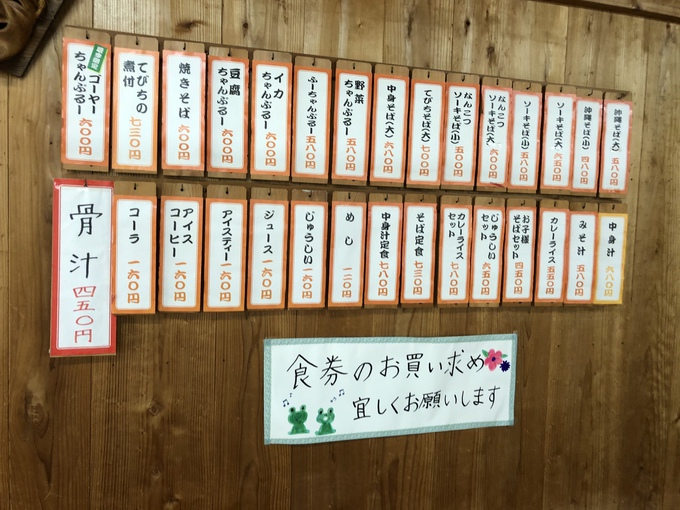 沖縄そば(大) 五八〇円
沖縄そば(小) 四八〇円
ソーキそば(大) 六五〇円
ソーキそば(小) 五五〇円
なんこつ
ソーキそば(大) 六〇〇円
なんこつ
ソーキそば(小) 五〇〇円
てびちそば(大) 七〇〇円
中身そば(大) 六八〇円
野菜
ちゃんぷるー 五八〇円
ふーちゃんぷるー 五八〇円
イカ
ちゃんぷるー 六〇〇円
豆腐
ちゃんぷるー 六〇〇円
焼きそば 六〇〇円
てびちの
煮付 七三〇円
ゴーヤー
ちゃんぷるー 六〇〇円
中身汁 六八〇円
みそ汁 五八〇円
カレーライス 五五〇円
お子様
そばセット 四五〇円
じゅうしい
セット 六五〇円
カレーライス
セット 七八〇円
そば定食 七三〇円
中身汁定食 七八〇円
めし 一二〇円
じゅうしい 一六〇円
ジュース 一六〇円
アイスティー 一六〇円
アイス
コーヒー 一六〇円
コーラ 一六〇円
骨汁 四五〇円
食券のお買い求め
宜しくお願いします